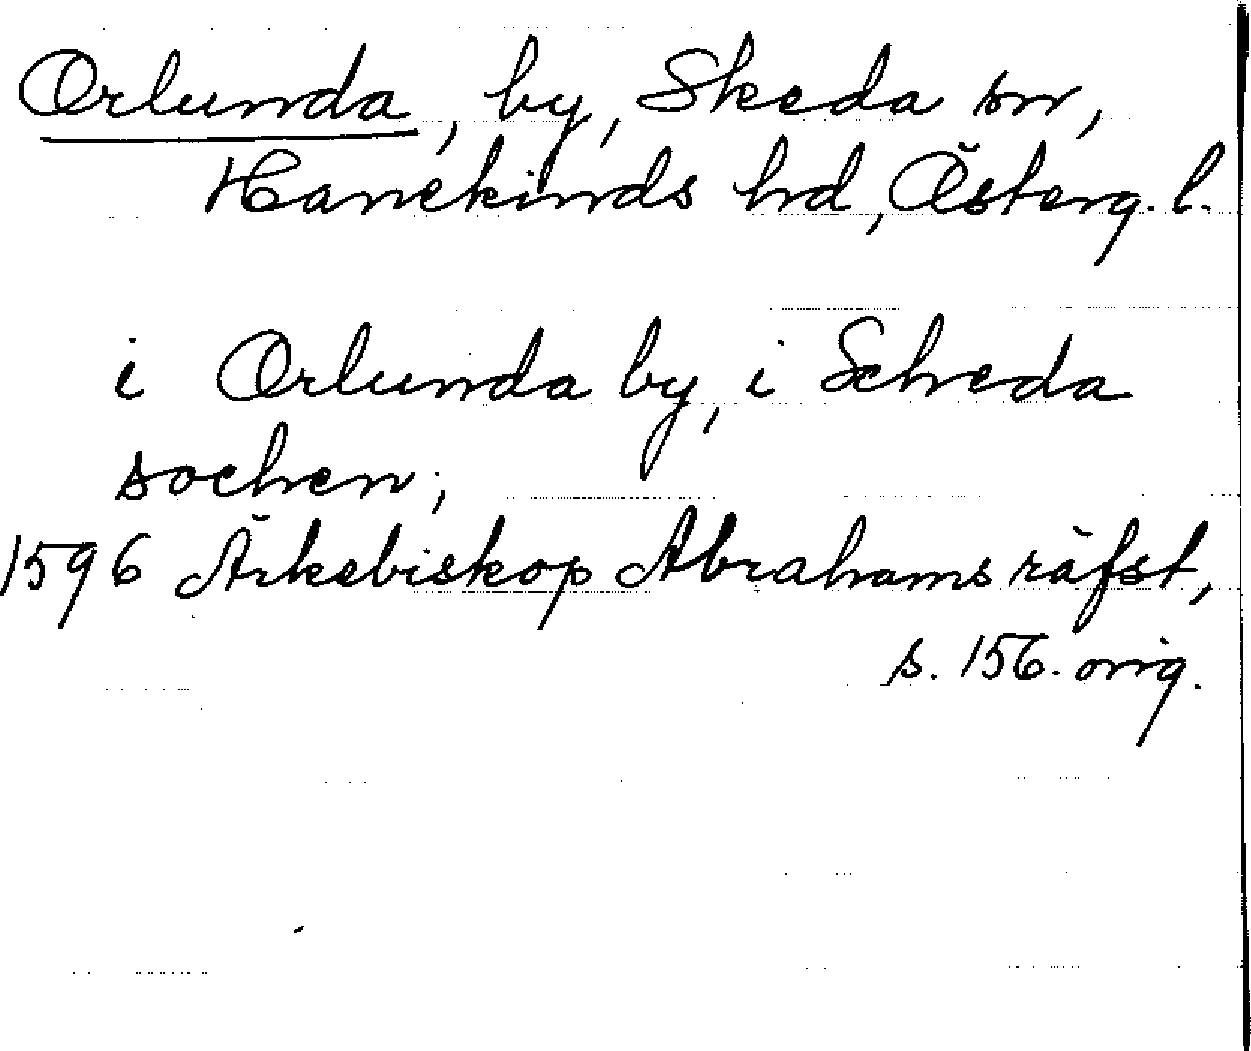 Orlunda, by, Skeda sn,
Hanekinds hd, Österg. l.
i Orlunda by, i Scheda
sochen;
1596 Ärkebiskop Abrahams räfst,
s. 156. orig.